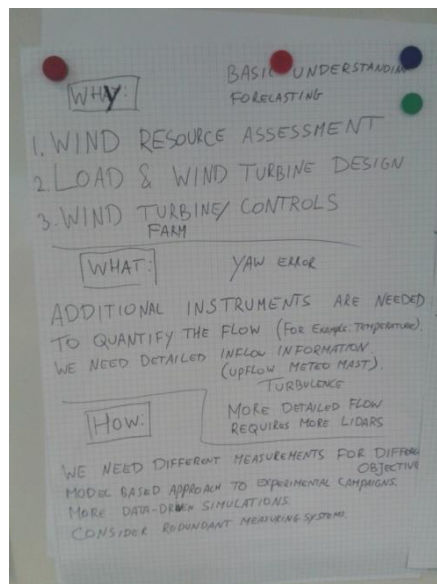 WHY:
BASIC UNDERSTANDIN
FORECASTING
1. WIND RESOURCE ASSESSMENT
2. LOAD & WIND TURBINE DESIGN
3. WIND TURBINE/ CONTROLS
FARM
WHAT:
YAW ERROR
ADDITIONAL INSTRUMENTS ARE NEEDED
TO QUANTIFY THE FLOW (FOR EXAMPLE: TEMPERATURE).
WE NEED DETAILED INFLOW INFORMATION
(UPFLOW METEO MAST).
TURBULENCE
HOW:
MORE DETAILED FLOW
REQUIRES MORE LIDARS
WE NEED DIFFERENT MEASUREMENTS FOR DIFFEREN
OBJECTIVE
MODEL BASED APPROACH TO EXPERIMENTAL CAMPAIGNS.
MORE DATA-DRIVEN SIMULATIONS.
CONSIDER REDUNDANT MEASURING SYSTEMS.